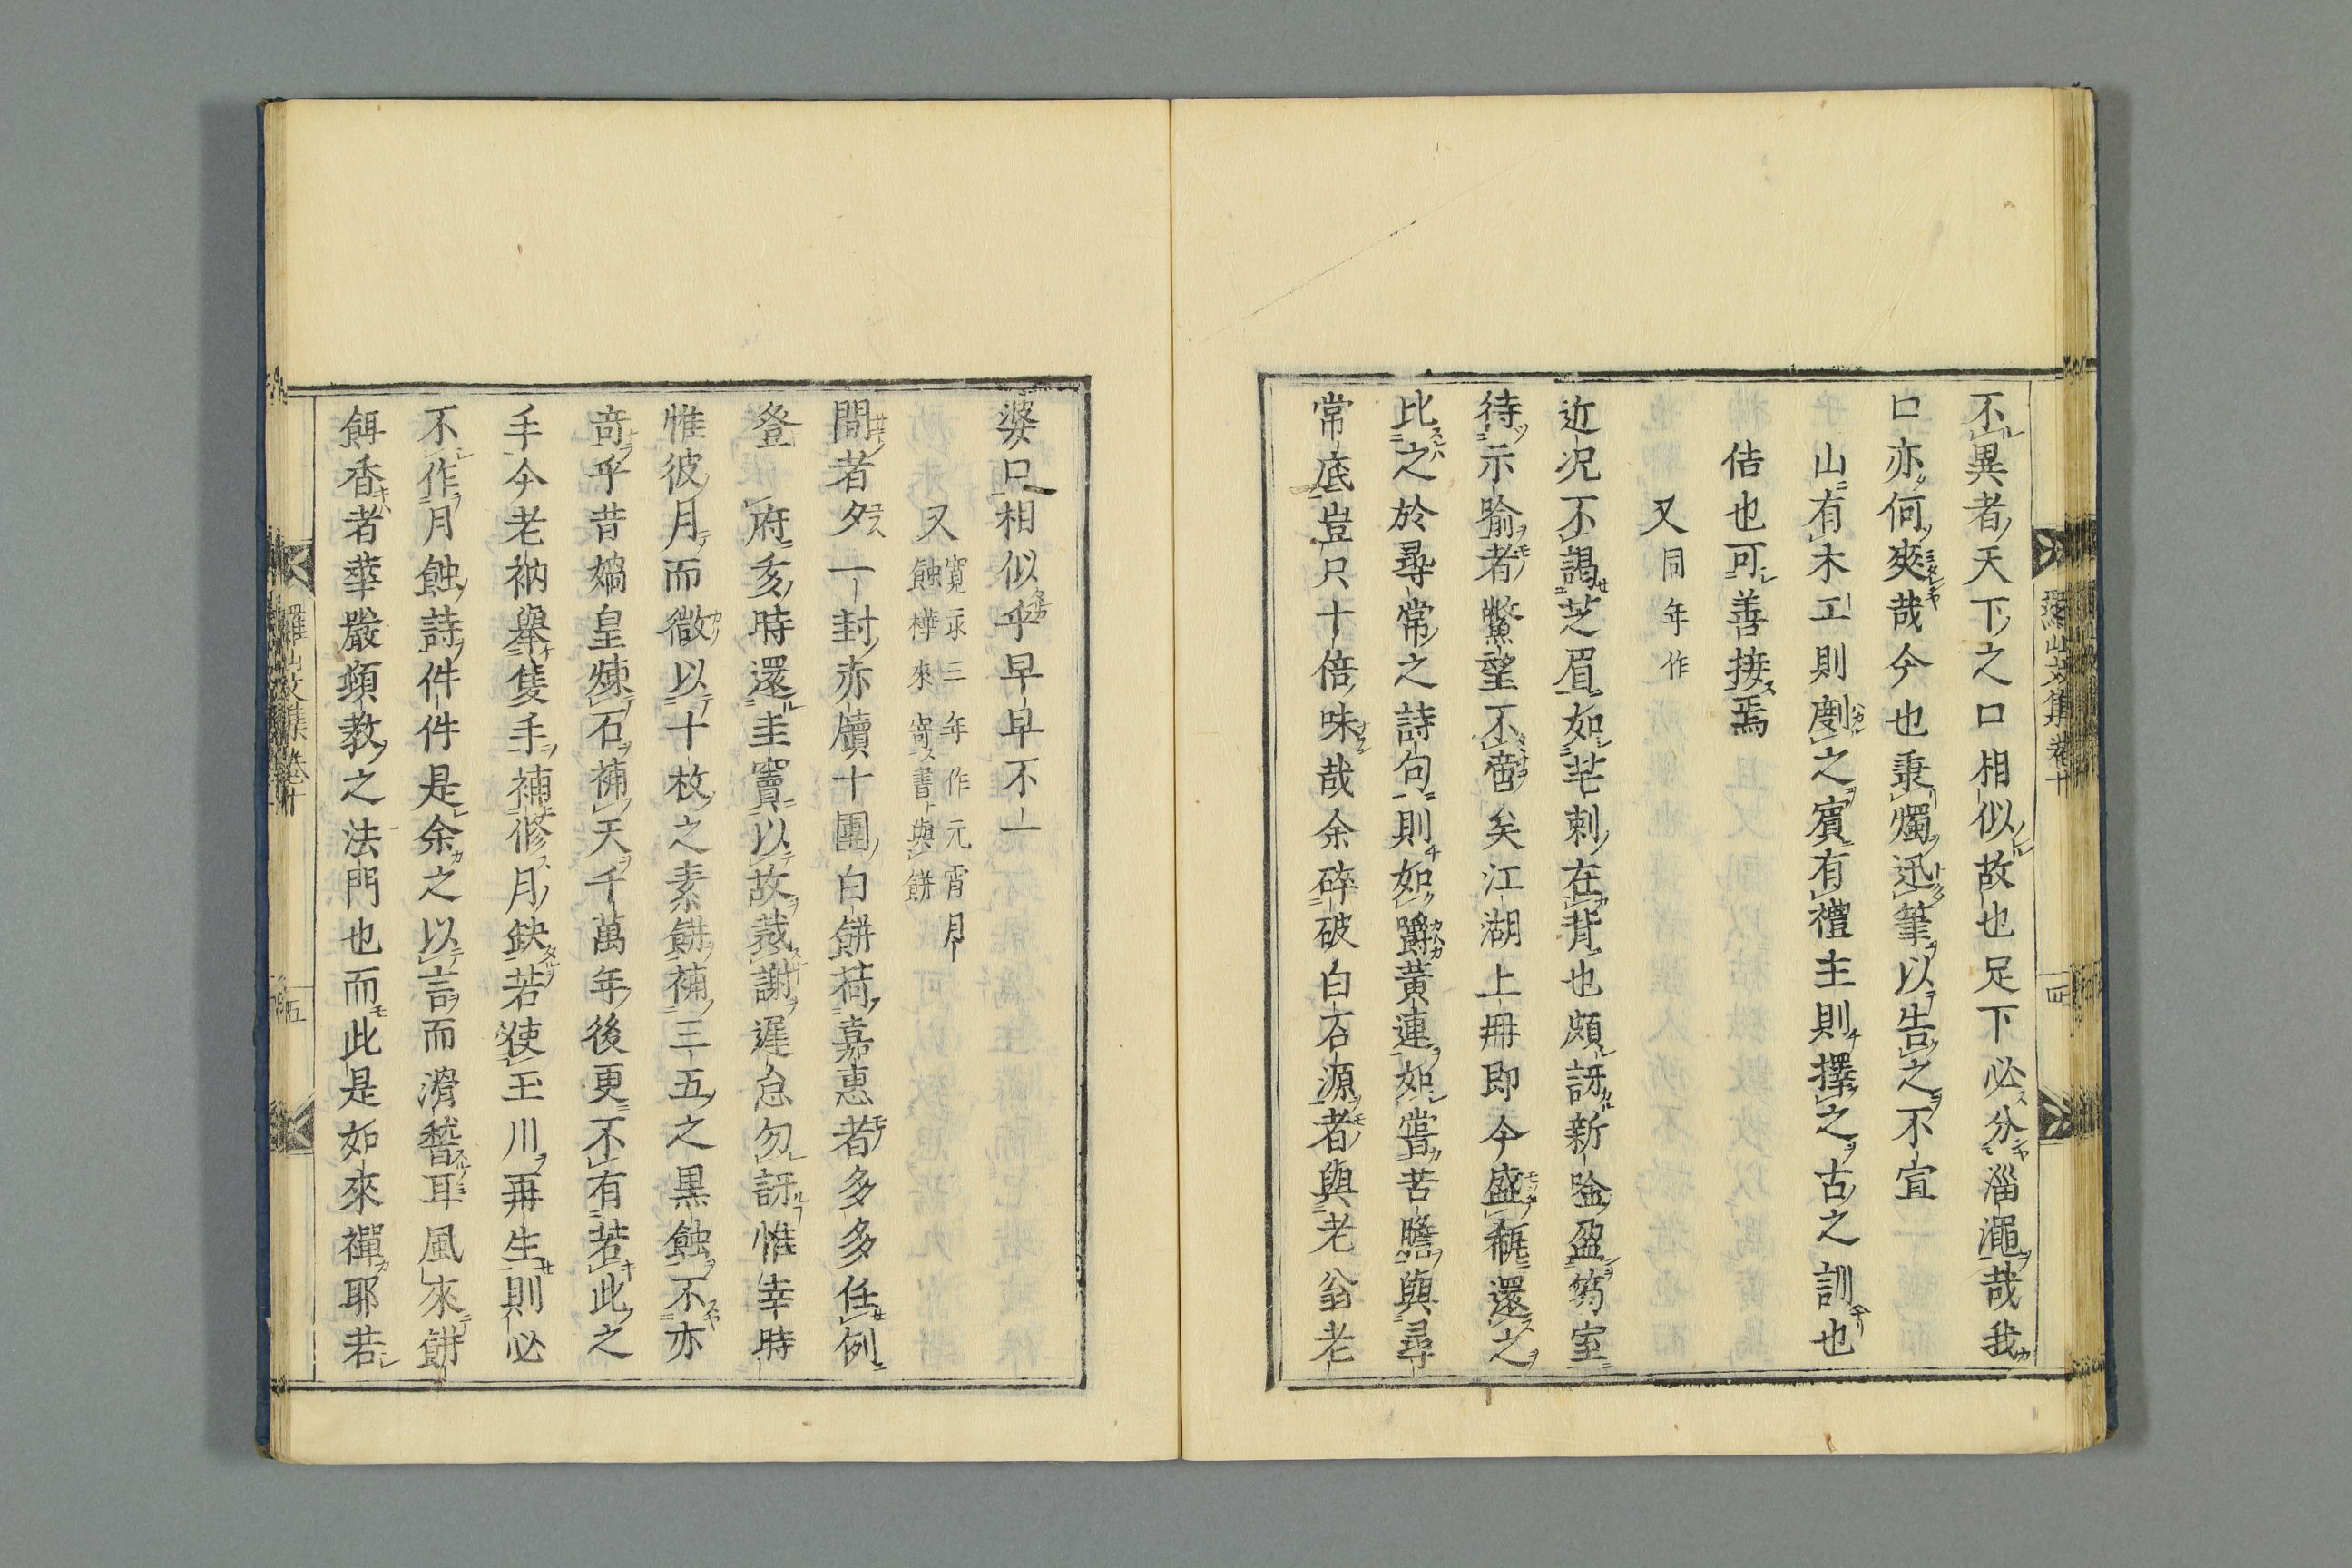 不異者天下之口相似故也足下必分淄澠哉我
口亦何爽哉今也秉燭迅筆以告之不宣
山有木工則劇之賓有禮主則擇之古之訓也
佶也可善接焉
又同年作
近況不謁芝眉如芒刺在背也頗訝新唫盈笏室
待示喩者鱉望不啻矣江湖上冊即今盛瓻還之
比之於尋常之詩句則如嚼黃連如嘗苦膽與尋
常底豈只十倍味哉余碎破白石源者與老翁老
羅山文集 卷十
四
婆只相似乎早早不一
又寬永三年作元宵月
蝕樺來寄書與餅
間者夕一封赤牘十團白餅荷嘉惠者多多任例
登府亥時還圭竇以故裁謝遲怠勿訝惟幸時
惟彼月而微以十枚之素餅補三五之黑蝕不亦
奇乎昔媧皇煉石補天千萬年後更不有若此之
手今老衲舉隻手補修月缺若使玉川再生則必
不作月蝕詩件件是余之以言而滑稽耳風來餅
餌香者華嚴頓教之法門也而此是如來禪耶若
羅山文集 卷十
五